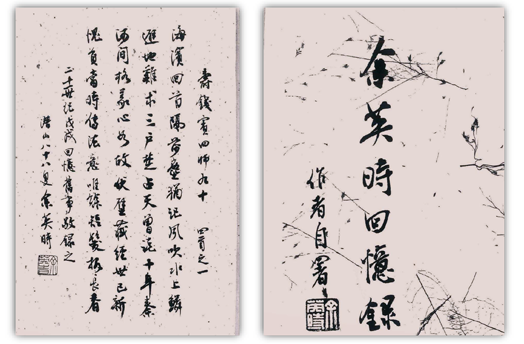 壽錢賓四師九十 四首之一
海濱回首隔前塵猶記風吹水上鱗
避地難求三戶楚占天曾說十年秦
河間格義心如故伏壁藏經世已新
愧負當時傳法意唯餘短髮報長春
二十世紀戊戌回憶舊事敬錄之
潛山八十八叟余英時
余英時回憶錄
作者自署